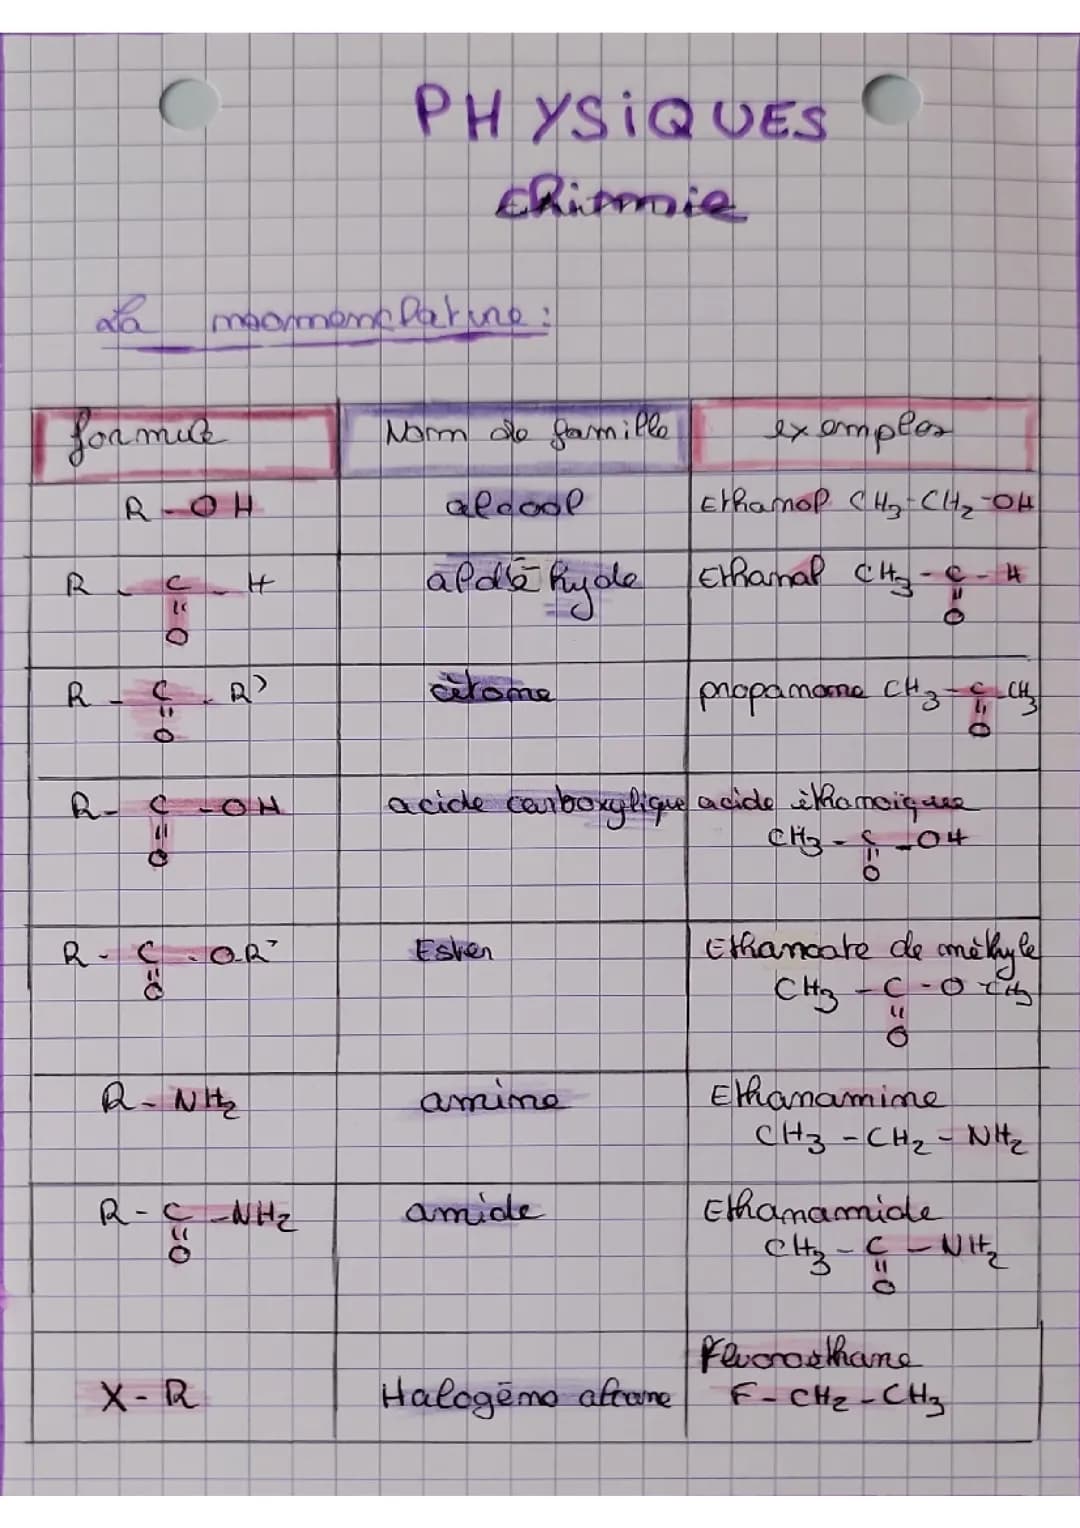 PHYSIQUES
chimie
La nomenclature :
formule Nom de famille exemples
R - OH alcool Ethanol CH3-CH2-OH
R - C - H aldéhyde Ethanal CH3-C-H
=O =O
R - C - R' cétone propanone CH3-C-CH3
=O =O
R - C - OH acide carboxylique acide éthanoïque
=O CH3-C-OH
=O
R - C - O-R' Ester Ethanoate de méthyle
=O CH3-C-O-CH3
=O
R - NH2 amine Ethanamine
CH3-CH2-NH2
R - C - NH2 amide Ethanamide
=O CH3-C-NH2
=O
Fluoroéthane
X - R Halogéno alcane F-CH2-CH3